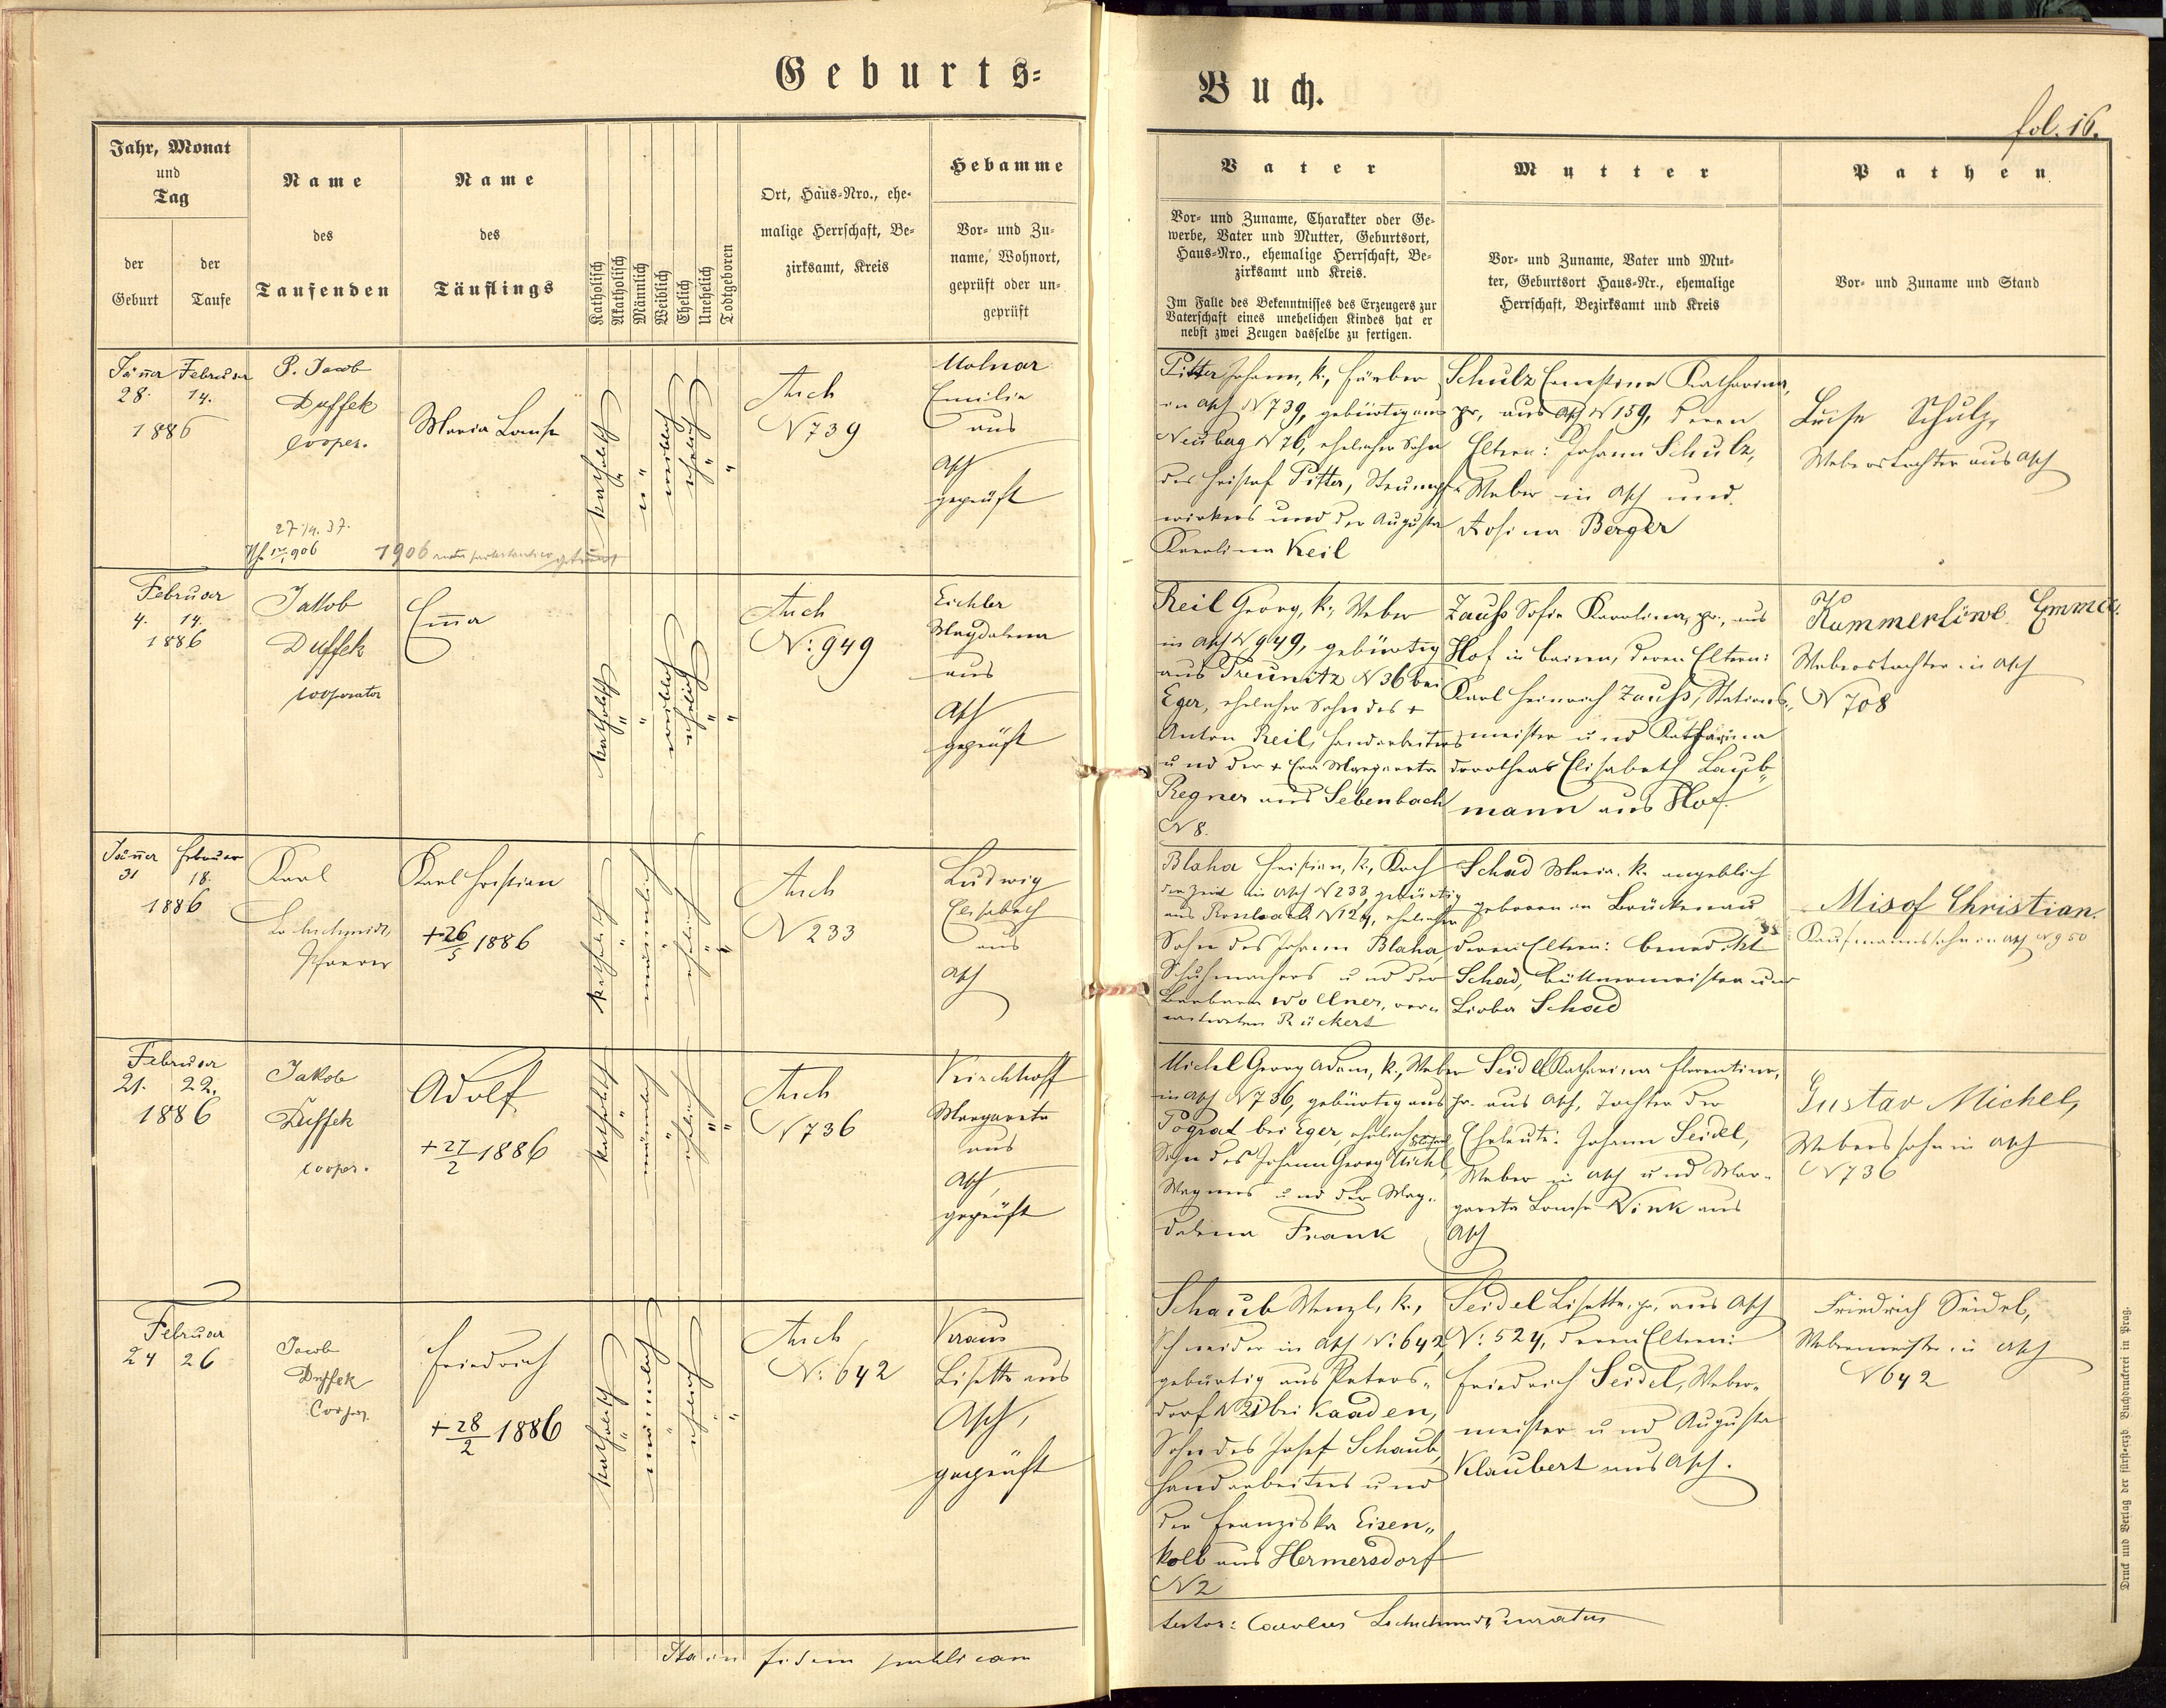 Geburts=
Buch.
fol. 16.
Jahr, Monat
und
Tag
der
Geburt
der
Taufe
Name
des
Taufenden
Name
des
Täuflings
Katholisch
Akatholisch
Männlich
Weiblich
Ehelich
Unehelich
Todtgeboren
Ort, Haus-Nro., ehe-
malige Herrschaft, Be-
zirksamt, Kreis
Hebamme
Vor- und Zu-
name, Wohnort,
geprüft oder un-
geprüft
Vater
Vor- und Zuname, Charakter oder Ge-
werbe, Vater und Mutter, Geburtsort,
Haus-Nro., ehemalige Herrschaft, Be-
zirksamt und Kreis.
Im Falle des Bekenntnisses des Erzeugers zur
Vaterschaft eines unehelichen Kindes hat er
nebst zwei Zeugen dasselbe zu fertigen.
Mutter
Vor- und Zuname, Vater und Mut-
ter, Geburtsort Haus-Nr., ehemalige
Herrschaft, Bezirksamt und Kreis
Pathen
Vor- und Zuname und Stand
Jänner Februar
28. 14.
1886
P. Jacob
Duffek
cooper.
Maria Louise
katholisch
"
"
weiblich
ehelich
"
"
Asch
N 739
Molnar
Emilie
aus
Asch
geprüft
Pitter Johann, k., Färber
in Asch N 739, gebürtig aus
Neuberg N 76, ehelicher Sohn
des Cristof Pitter, Strumpf-
wirkers und der Augusta
Karolina Keil
Schulz Ernestine Katharina,
pr., aus Asch N 159, deren
Eltern: Johann Schulz,
Weber in Asch und
Rosina Berger
Luise Schulz,
Weberstochter aus Asch
27/4. 37.
1906
Februar
4. 14.
1886
Jakob
Duffek
cooperator
Em̄a
katholisch
"
"
weiblich
ehelich
"
"
Asch
N: 949
Eichler
Magdalena
aus
Asch
geprüft
Reil Georg, k., Weber
in Asch N 949, gebürtig
aus Treunitz N 36 bei
Eger, ehelicher Sohn des +
Anton Reil, Handarbeiters
und der + Eva Margareta
Regner aus Sebenbach
N 8.
Zauss Sofie Karolina, pr., aus
Hof in Baiern, deren Eltern:
Karl Heinrich Zauss, Stations-
meister und Katharina
Dorothea Elisabeth Laub-
mann aus Hof.
Kummerlöwe Emma
Weberstochter in Asch
N 708
Jänner Februar
31 18.
1886
Karl
Lochschmidt,
Pfarrer
Karl Christian
+ 26/5 1886
katholisch
"
männlich
"
ehelich
"
"
Asch
N 233
Ludwig
Elisabeth
aus
Asch
Blaha Christian, k., Koch
der Zeit in Asch N 233, gebürtig
aus Rossbach N 124, ehelicher
Sohn des Johann Blaha,
Schuhmachers und der
Barbara Wollner, ver-
Rückert
Schad Maria. k. angeblich
geboren in Brückenau
deren Eltern: Benedikt
Schad, Büttnermeister und
Lioba Schad
Misof Christian.
Kaufmannssohn in Asch N 950
Februar
21. 22.
1886
Jakob
Duffek
cooper.
Adolf
+ 27/2 1886
katholisch
"
männlich
"
ehelich
"
"
Asch
N 736
Kirchhoff
Margareta
aus
Asch,
geprüft
Michel Georg Adam, k., Weber
in Asch N 736, gebürtig aus
Pograt bei Eger, ehelicher
Sohn des Johann Georg Michl,
Wagners und der Mag-
dalena Frank
Seidel Katharina Florentine,
pr. aus Asch, Tochter der
Eheleute: Johann Seidel,
Weber in Asch und Mar-
gareta Louise Wink aus
Asch
Gustav Michel,
Weberssohn in Asch
N 736
Februar
24 26
Jacob
Duffek
Cooper.
Friedrich
+ 28/2 1886
katholisch
"
männlich
"
ehelich
"
"
Asch
N: 642
Kraus
Lisette aus
Asch,
geprüft
Schaub Wenzl, k.,
Schneider in Asch N: 642,
gebürtig aus Peters-
dorf N 21 bei Kaaden,
Sohn des Josef Schaub,
Handarbeiters und
der Franziska Eisen-
kolb aus Hermersdorf
N 2
Seidel Lisette, pr. aus Asch
N: 524, deren Eltern:
Friedrich Seidel, Weber-
meister und Augusta
Klaubert aus Asch.
Friedrich Seidel,
Webermeister in Asch
N 642
Ita in fidem publicam
testor: Carolus Lochschmidt, curatus
Druck und Verlag der fürst-erzb. Buchdruckerei in Prag.